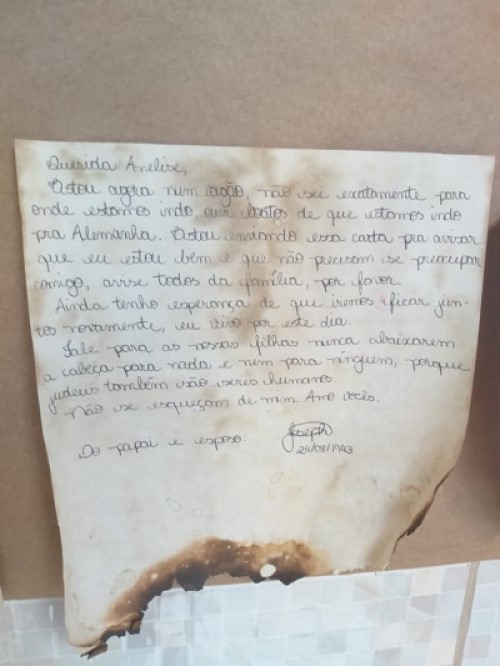 Querida Anelise,
Estou agora num vagão, não sei exatamente para
onde estamos indo, ouvi boatos de que estamos indo
pra Alemanha. Estou enviando essa carta pra avisar
que eu estou bem e que não precisam se preocupar
comigo, avise todos da família, por favor.
Ainda tenho esperança de que iremos ficar jun-
tos novamente, eu vivo por este dia.
Fale para as nossas filhas nunca abaixarem
a cabeça para nada e nem para ninguém, porque
judeus também são seres humanos.
Não se esqueçam de mim. Amo vocês.
Do papai e esposo:
Joseph
24/09/1943